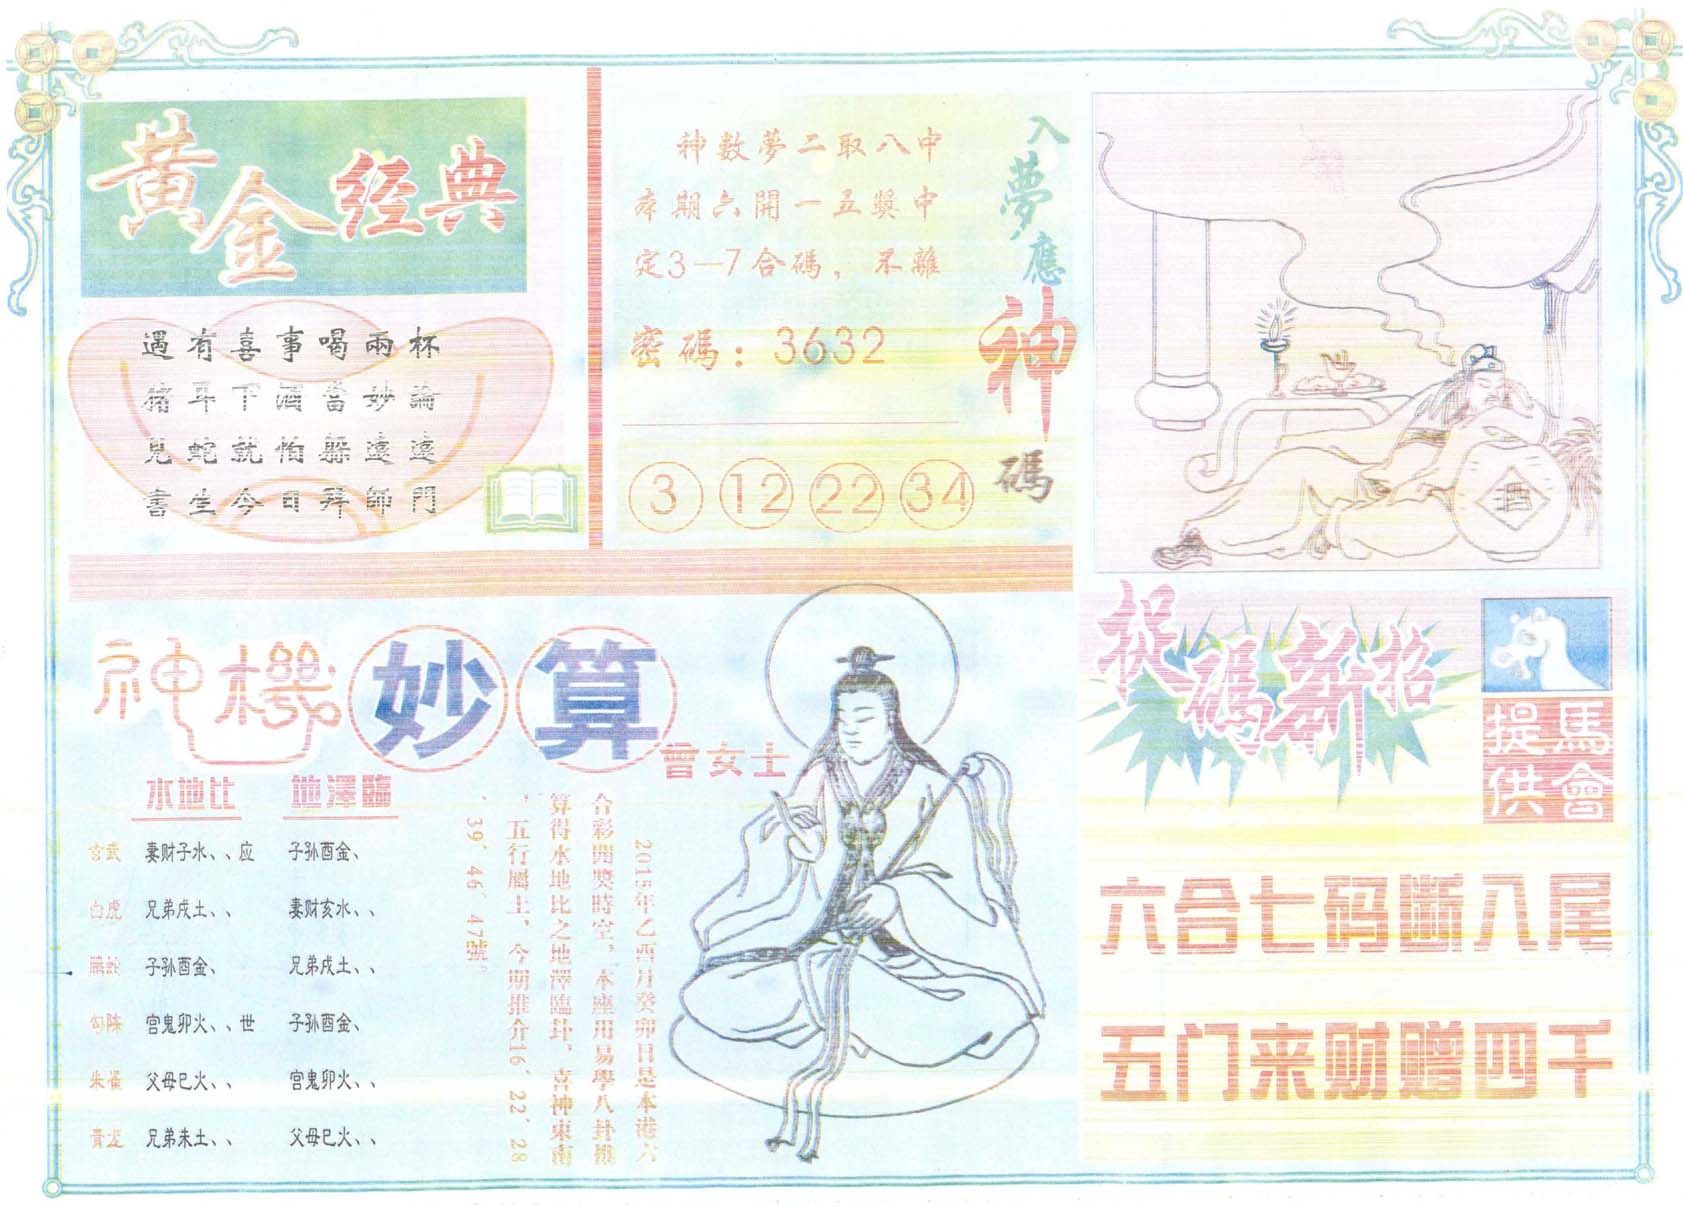 黃金经典
遇有喜事喝兩杯
豬耳下酒當妙論
見蛇就怕躲遠遠
書生今日拜師門
神數夢二取八中
本期六開一五獎中
定3—7合碼，不離
密碼：3632
3 12 22 34
入夢應神碼
酒
神機妙算
曾女士
水地比 地澤臨
玄武 妻财子水、、应 子孙酉金、
白虎 兄弟戌土、、 妻财亥水、、
腾蛇 子孙酉金、 兄弟戌土、、
勾陈 官鬼卯火、、世 子孙酉金、
朱雀 父母巳火、、 官鬼卯火、、
青龙 兄弟未土、、 父母巳火、、
2015年乙酉月癸卯日是本港六
合彩開獎時空，本座用易學八卦推
算得水地比之地澤臨卦，喜神東南
，五行屬土，今期推介16、22、28
、39、46、47號。
捉碼新招
捉馬
供會
六合七码断八尾
五门来财赠四千